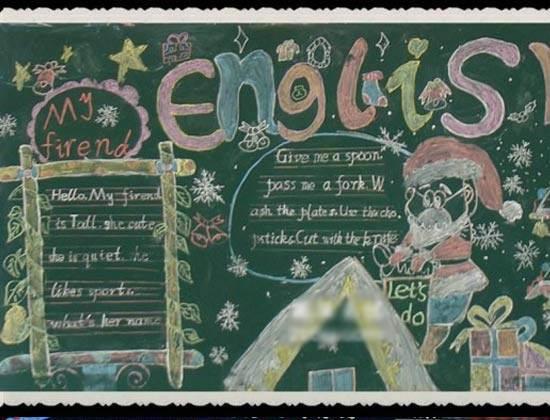 English
My
firend
Hello. My firend
is Tall. she cute
she is quiet. he
likes sports.
what's her name
Give me a spoon.
pass me a fork. W
ash the plates. Use the cho.
pstick.s Cut with the knife
Let's
do